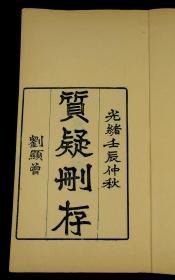 光緒壬辰仲秋
質疑刪存
劉顯曾